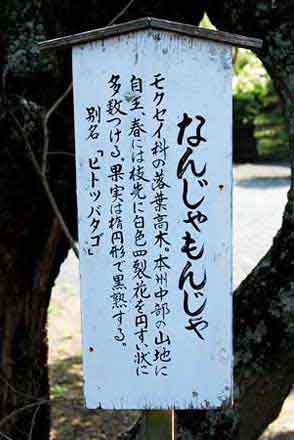 なんじゃもんじゃ
モクセイ科の落葉高木。本州中部の山地に
自生、春には枝先に白色四裂花を円すい状に
多数つける。果実は楕円形で黒熟する。
別名「ヒトツバタゴ」